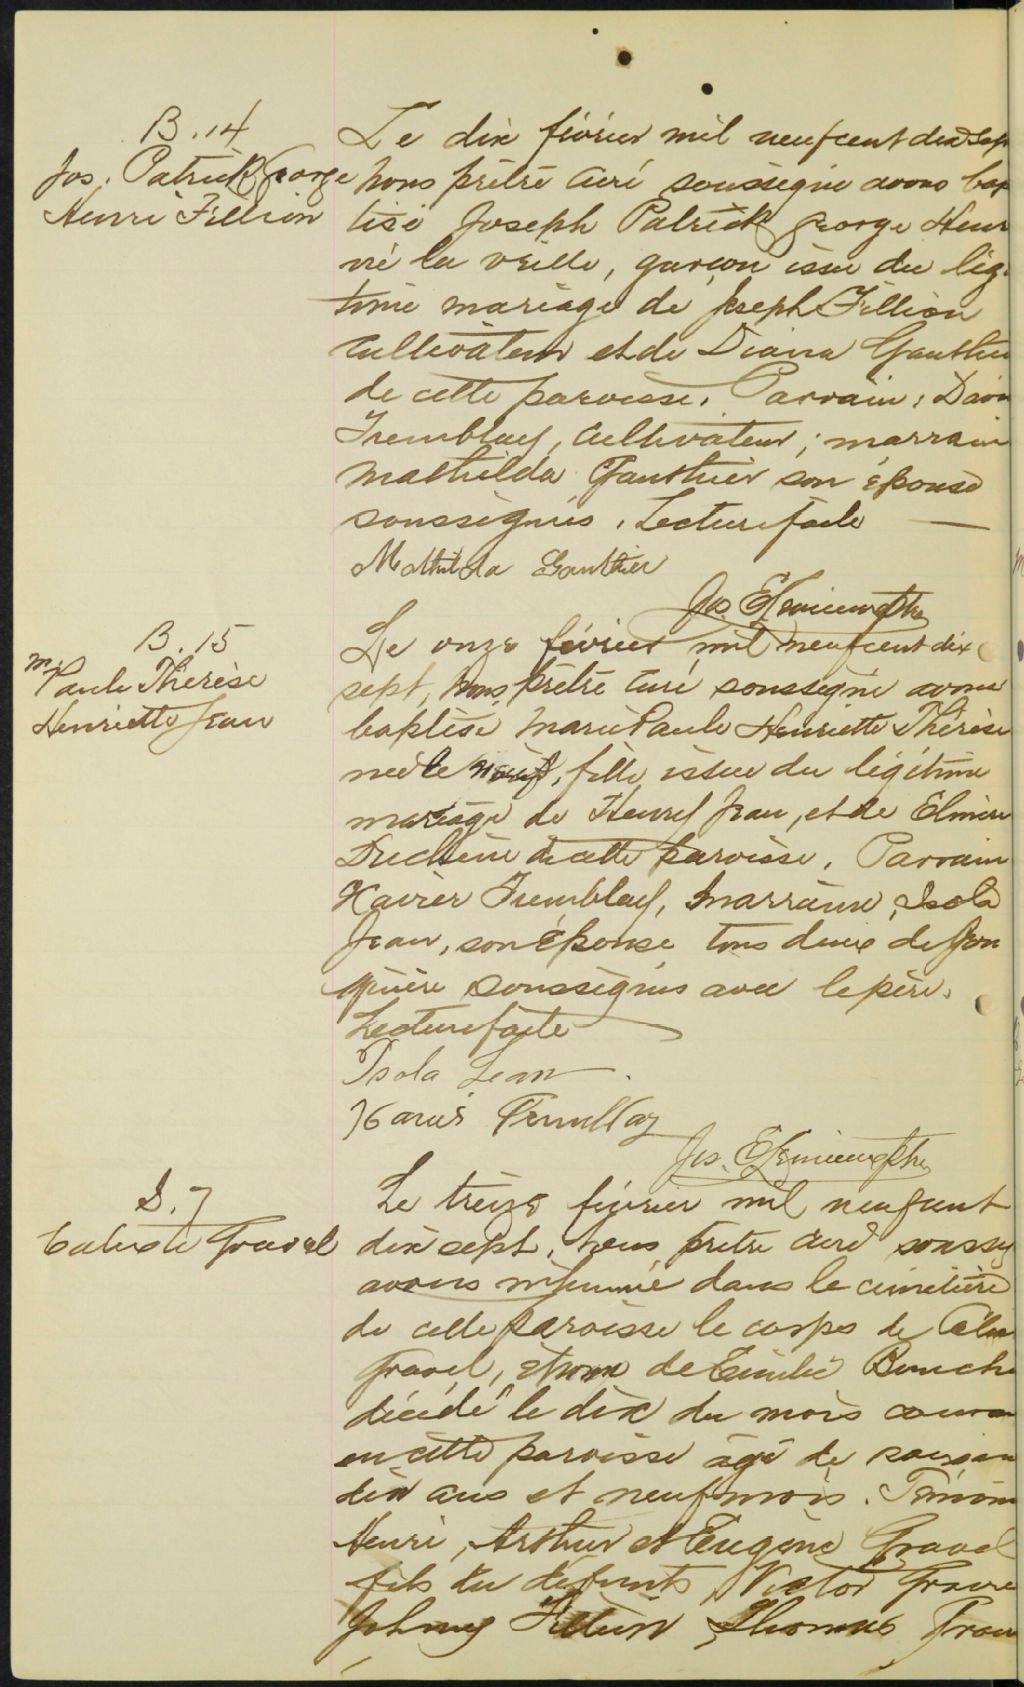 B. 14
Jos. Patrick George
Henri Fillion
Le dix février mil neufcent dix sep
nous prêtre curé soussigné avons bap
tisé Joseph Patrick George Henr
né la veille, garçon issu du lég
time mariage de Joseph Fillion
cultivateur et de Diana Gauthie
de cette paroisse. Parrain: David
Tremblay, cultivateur; marrain
Mathilda Gauthier son épouse
soussignés. Lecture faite
Mathilda Gauthier
Jos. E. ptre
B. 15
M.
Paule Thérèse
Henriette Jean
Le onze février mil neufcent dix
sept, nous prêtre curé soussigné avons
baptisé Marie Paule Henriette Thérèse
née le neuf, fille issue du légitime
mariage de Henry Jean, et de Elmire
Duchêne de cette paroisse. Parrain
Xavier Tremblay, marraine, Isola
Jean, son épouse tous deux de Jon
quière soussignés avec le père.
Lecture faite
Isola Jean
Xavier Tremblay
Jos. E. ptre
S. 7
Calixte Gravel
Le treize février mil neufcent
dix sept, nous prêtre curé soussig
avons inhumé dans le cimetière
de cette paroisse le corps de Calix
Gravel, époux de Emilie Bouch
décédé le dix du mois couran
en cette paroisse âgé de soixan
dix ans et neuf mois. Témoin
Henri, Arthur et Eugène Gravel
fils du défunts, Victor Grave
Johnny Fillion Thomas Grav